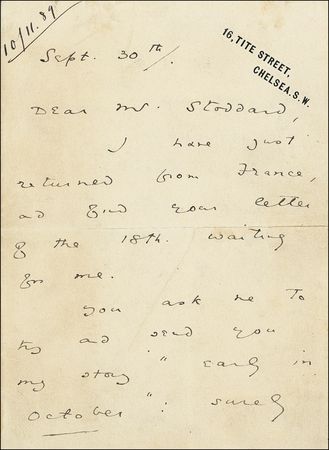 10/11.89
16, TITE STREET,
CHELSEA. S.W.
Sept. 30th/.
Dear Mr. Stoddard,
I have just
returned from France,
and find your letter
of the 18th. waiting
for me.
You ask me to
try and send you
my story " early in
October " : surely